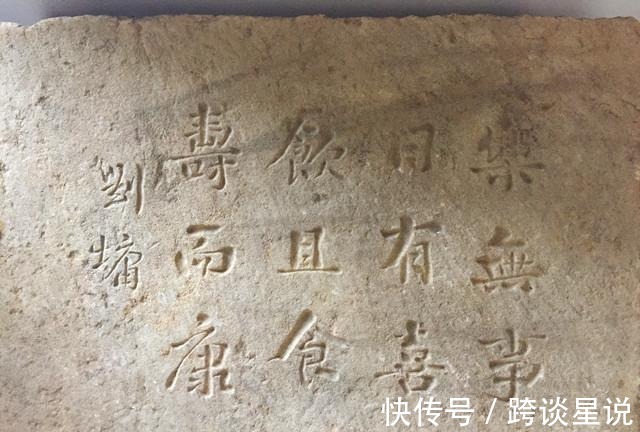 樂無事
日有喜
飲且食
壽而康
劉墉
快传号/跨谈星说